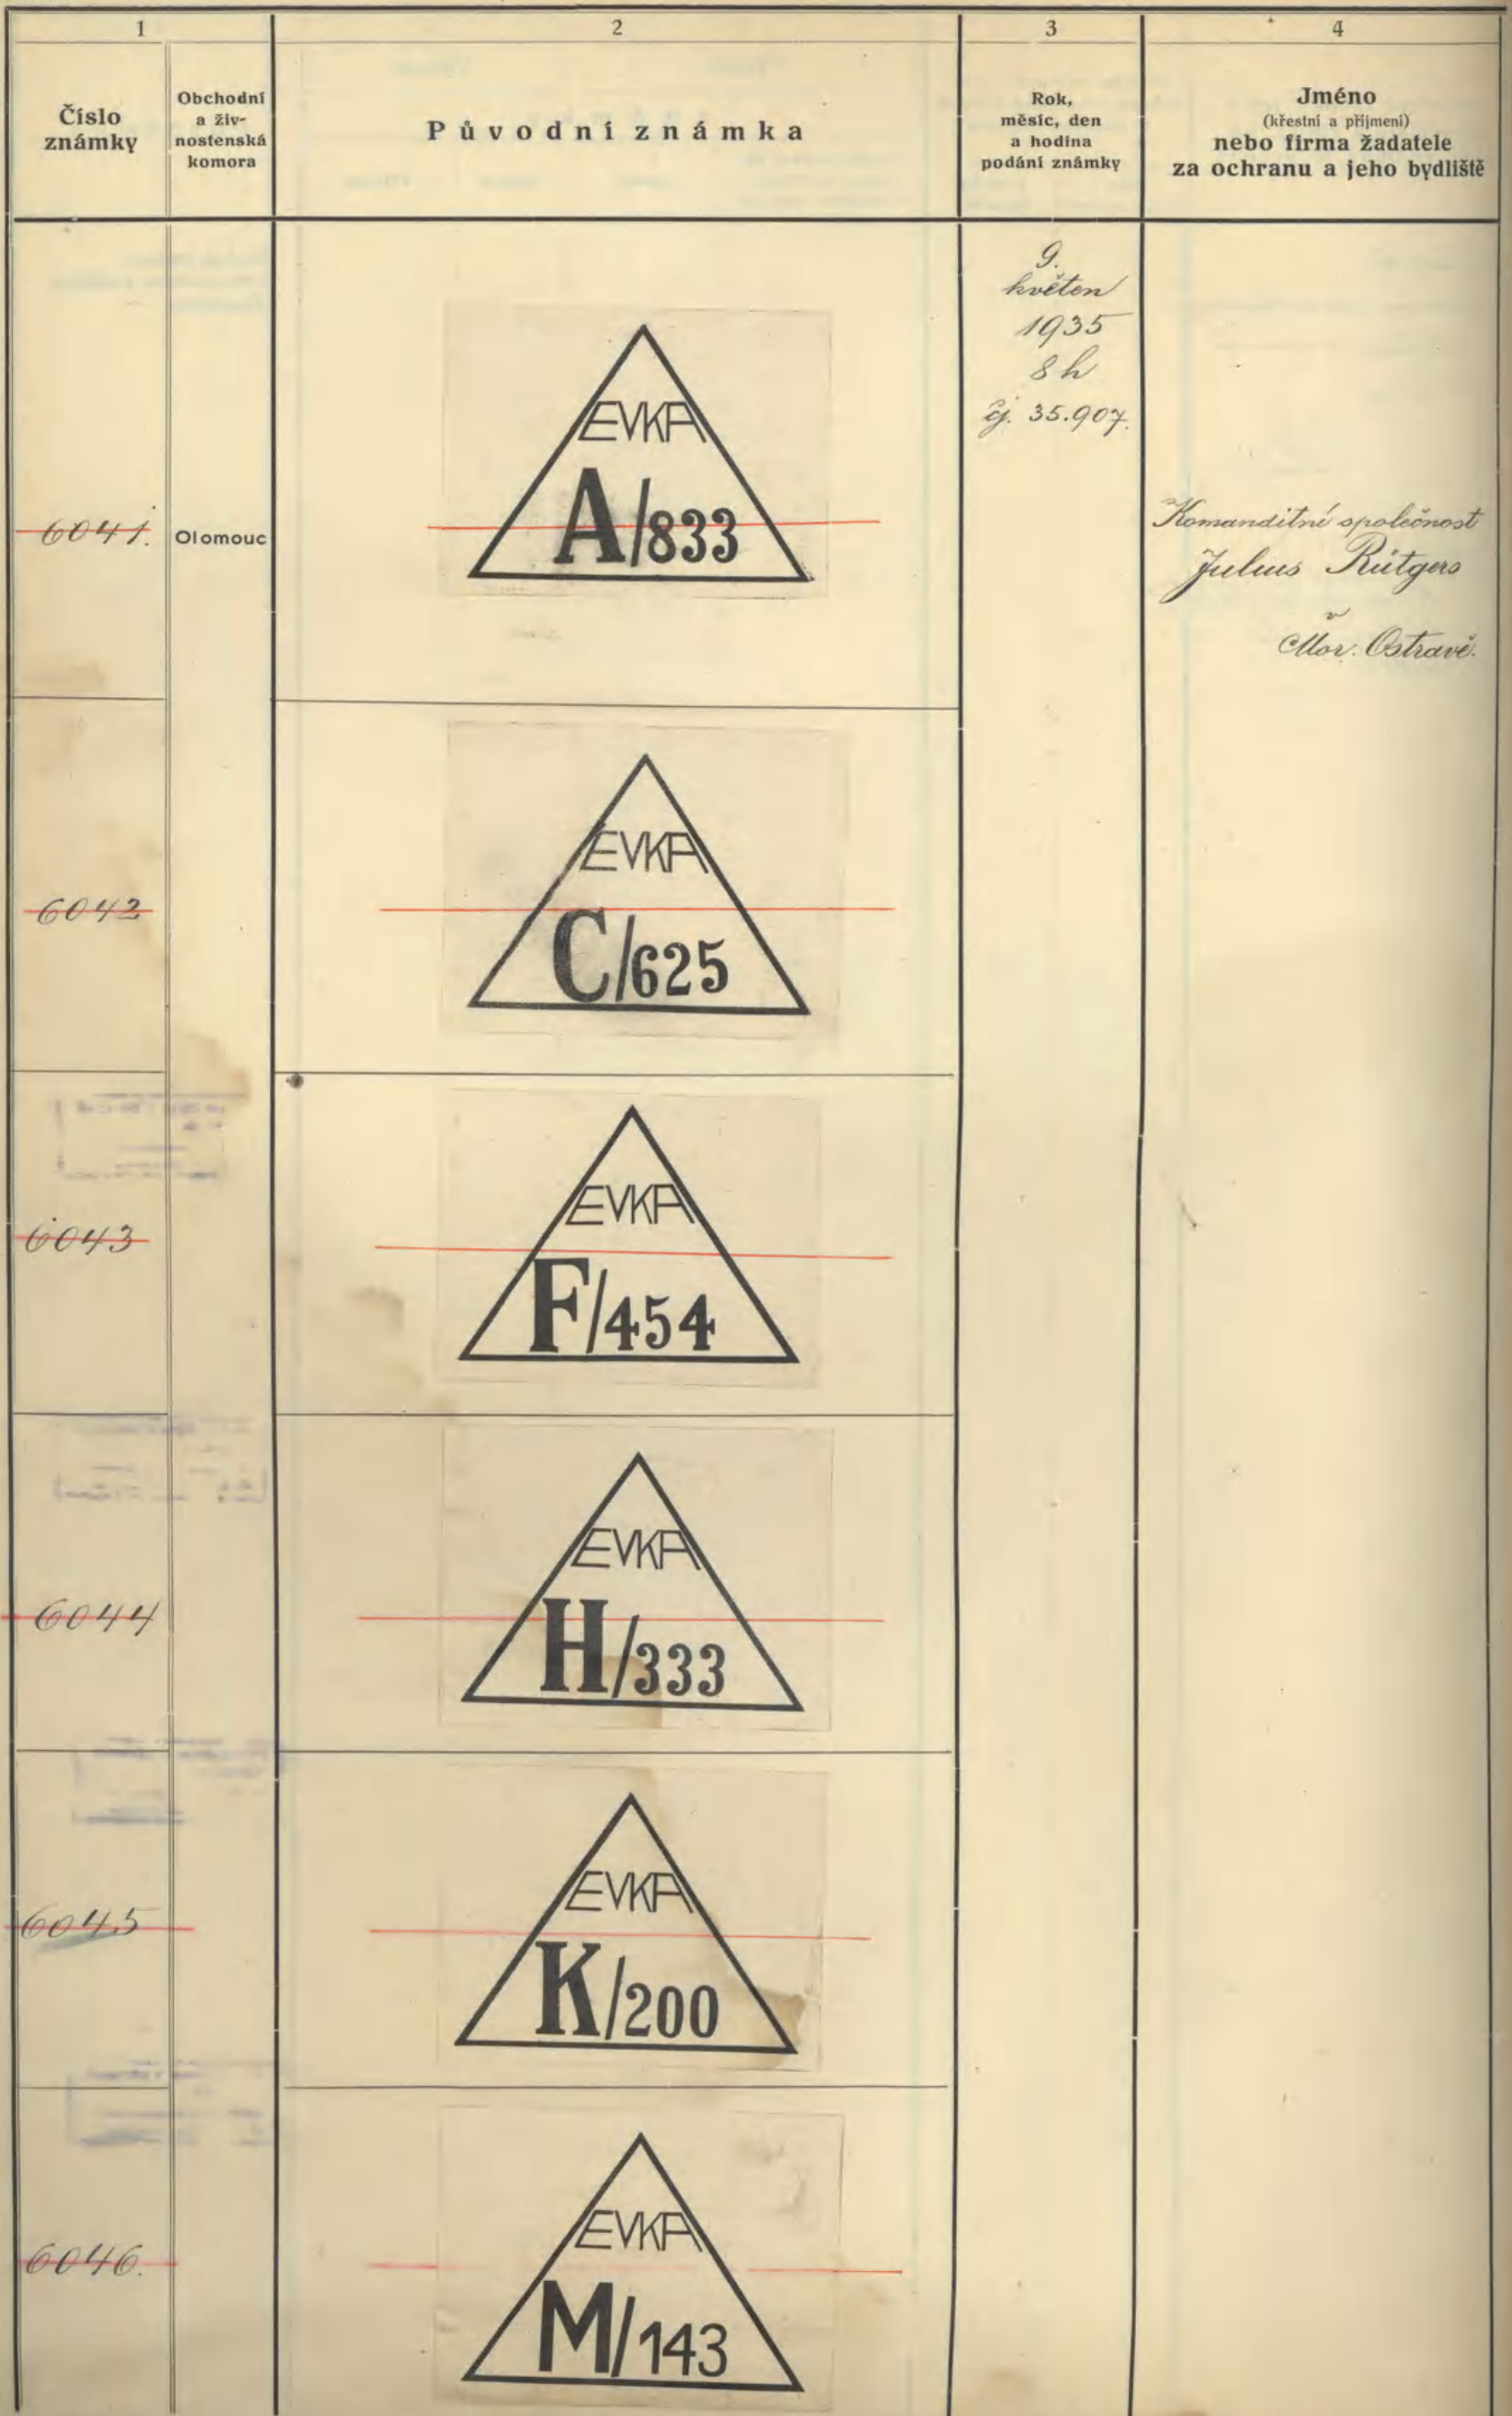 1
2
3
4
Číslo
známky
Obchodní
a živ-
nostenská
komora
Původní známka
Rok,
měsíc, den
a hodina
podání známky
Jméno
(křestní a příjmení)
nebo firma žadatele
za ochranu a jeho bydliště
9.
květen
1935
8 h
čj. 35.907.
6041.
Olomouc
EVKA
A/833
Komanditní společnost
Julius Rütgers
v
Mor. Ostravě.
6042
EVKA
C/625
6043
EVKA
F/454
6044
EVKA
H/333
6045
EVKA
K/200
6046.
EVKA
M/143